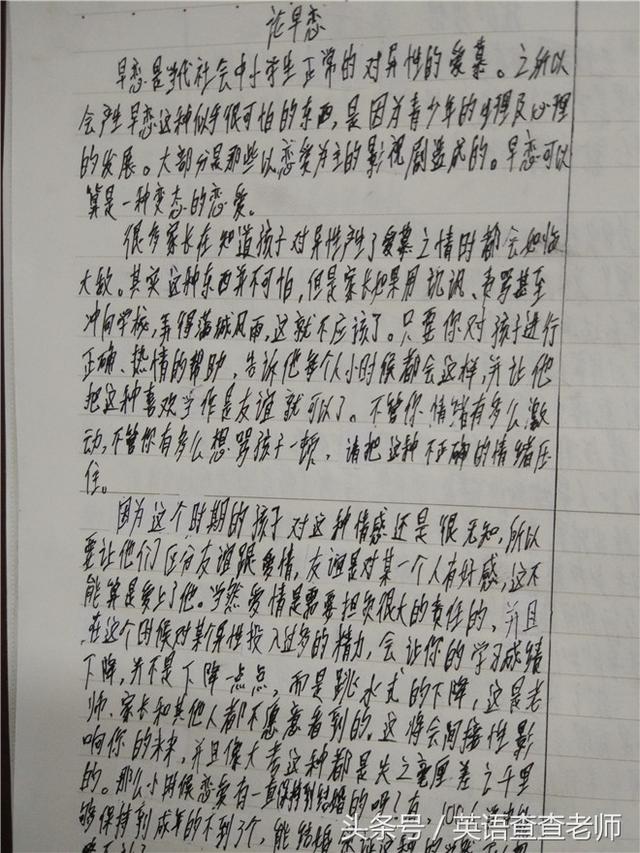 论早恋
早恋是当代社会中小学生正常的对异性的爱慕。之所以
会产生早恋这种似乎很可怕的东西，是因为青少年的生理及心理
的发展。大部分是那些以恋爱为主的影视剧造成的。早恋可以
算是一种变态的恋爱。
很多家长在知道孩子对异性产生了爱慕之情时都会如临
大敌。其实这种东西并不可怕，但是家长如果用讥讽、责骂甚至
冲向学校，弄得满城风雨，这就不应该了。只要你对孩子进行
正确、热情的帮助，告诉他每个人小时候都会这样，并让他
把这种喜欢当作是友谊就可以了。不管你情绪有多么激
动，不管你有多么想骂孩子一顿，请把这种不正确的情绪压
住。
因为这个时期的孩子对这种情感还是很无知，所以
要让他们区分友谊跟爱情，友谊是对某一个人有好感，这不
能算是爱上了他。当然爱情是需要担负很大的责任的，并且
在这个时候对某个异性投入过多的精力，会让你的学习成绩
下降，并不是下降一点点，而是跳水式的下降，这是老
师、家长和其他人都不愿意看到的。这将会间接性影
响你的未来，并且像大考这种都是失之毫厘差之千里
的。那么小时候恋爱有一直保持到结婚的吗？有，100
够保持到成年的不到3个，能结婚
头条号／英语查查老师